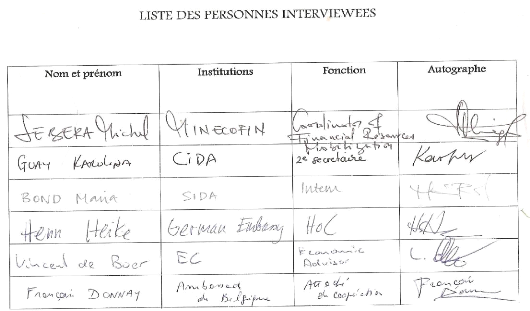 LISTE DES PERSONNES INTERVIEWEES
Nom et prénom Institutions Fonction Autographe
SEBERA Michel MINECOFIN Coordinator of
Financial Resources
Mobilization
GUAY KAROLINA CIDA 2e secretaire
BOND Maria SIDA Intern
Henn Heike German Embassy HoC
Vincent de Boer EC Economic
Advisor
François DONNAY Ambassade Attaché François
de Belgique de coopération Donnay